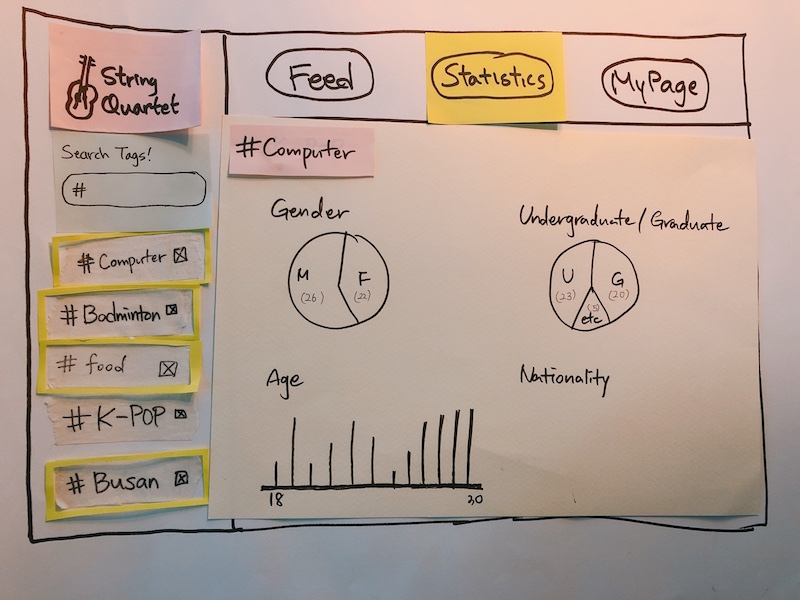 String
Quartet
Feed
Statistics
MyPage
Search Tags!
#
#Computer
#Badminton
#food
#K-POP
#Busan
#Computer
Gender
M
(26)
F
(22)
Undergraduate/Graduate
U
(23)
G
(20)
(5)
etc
Age
18
30
Nationality